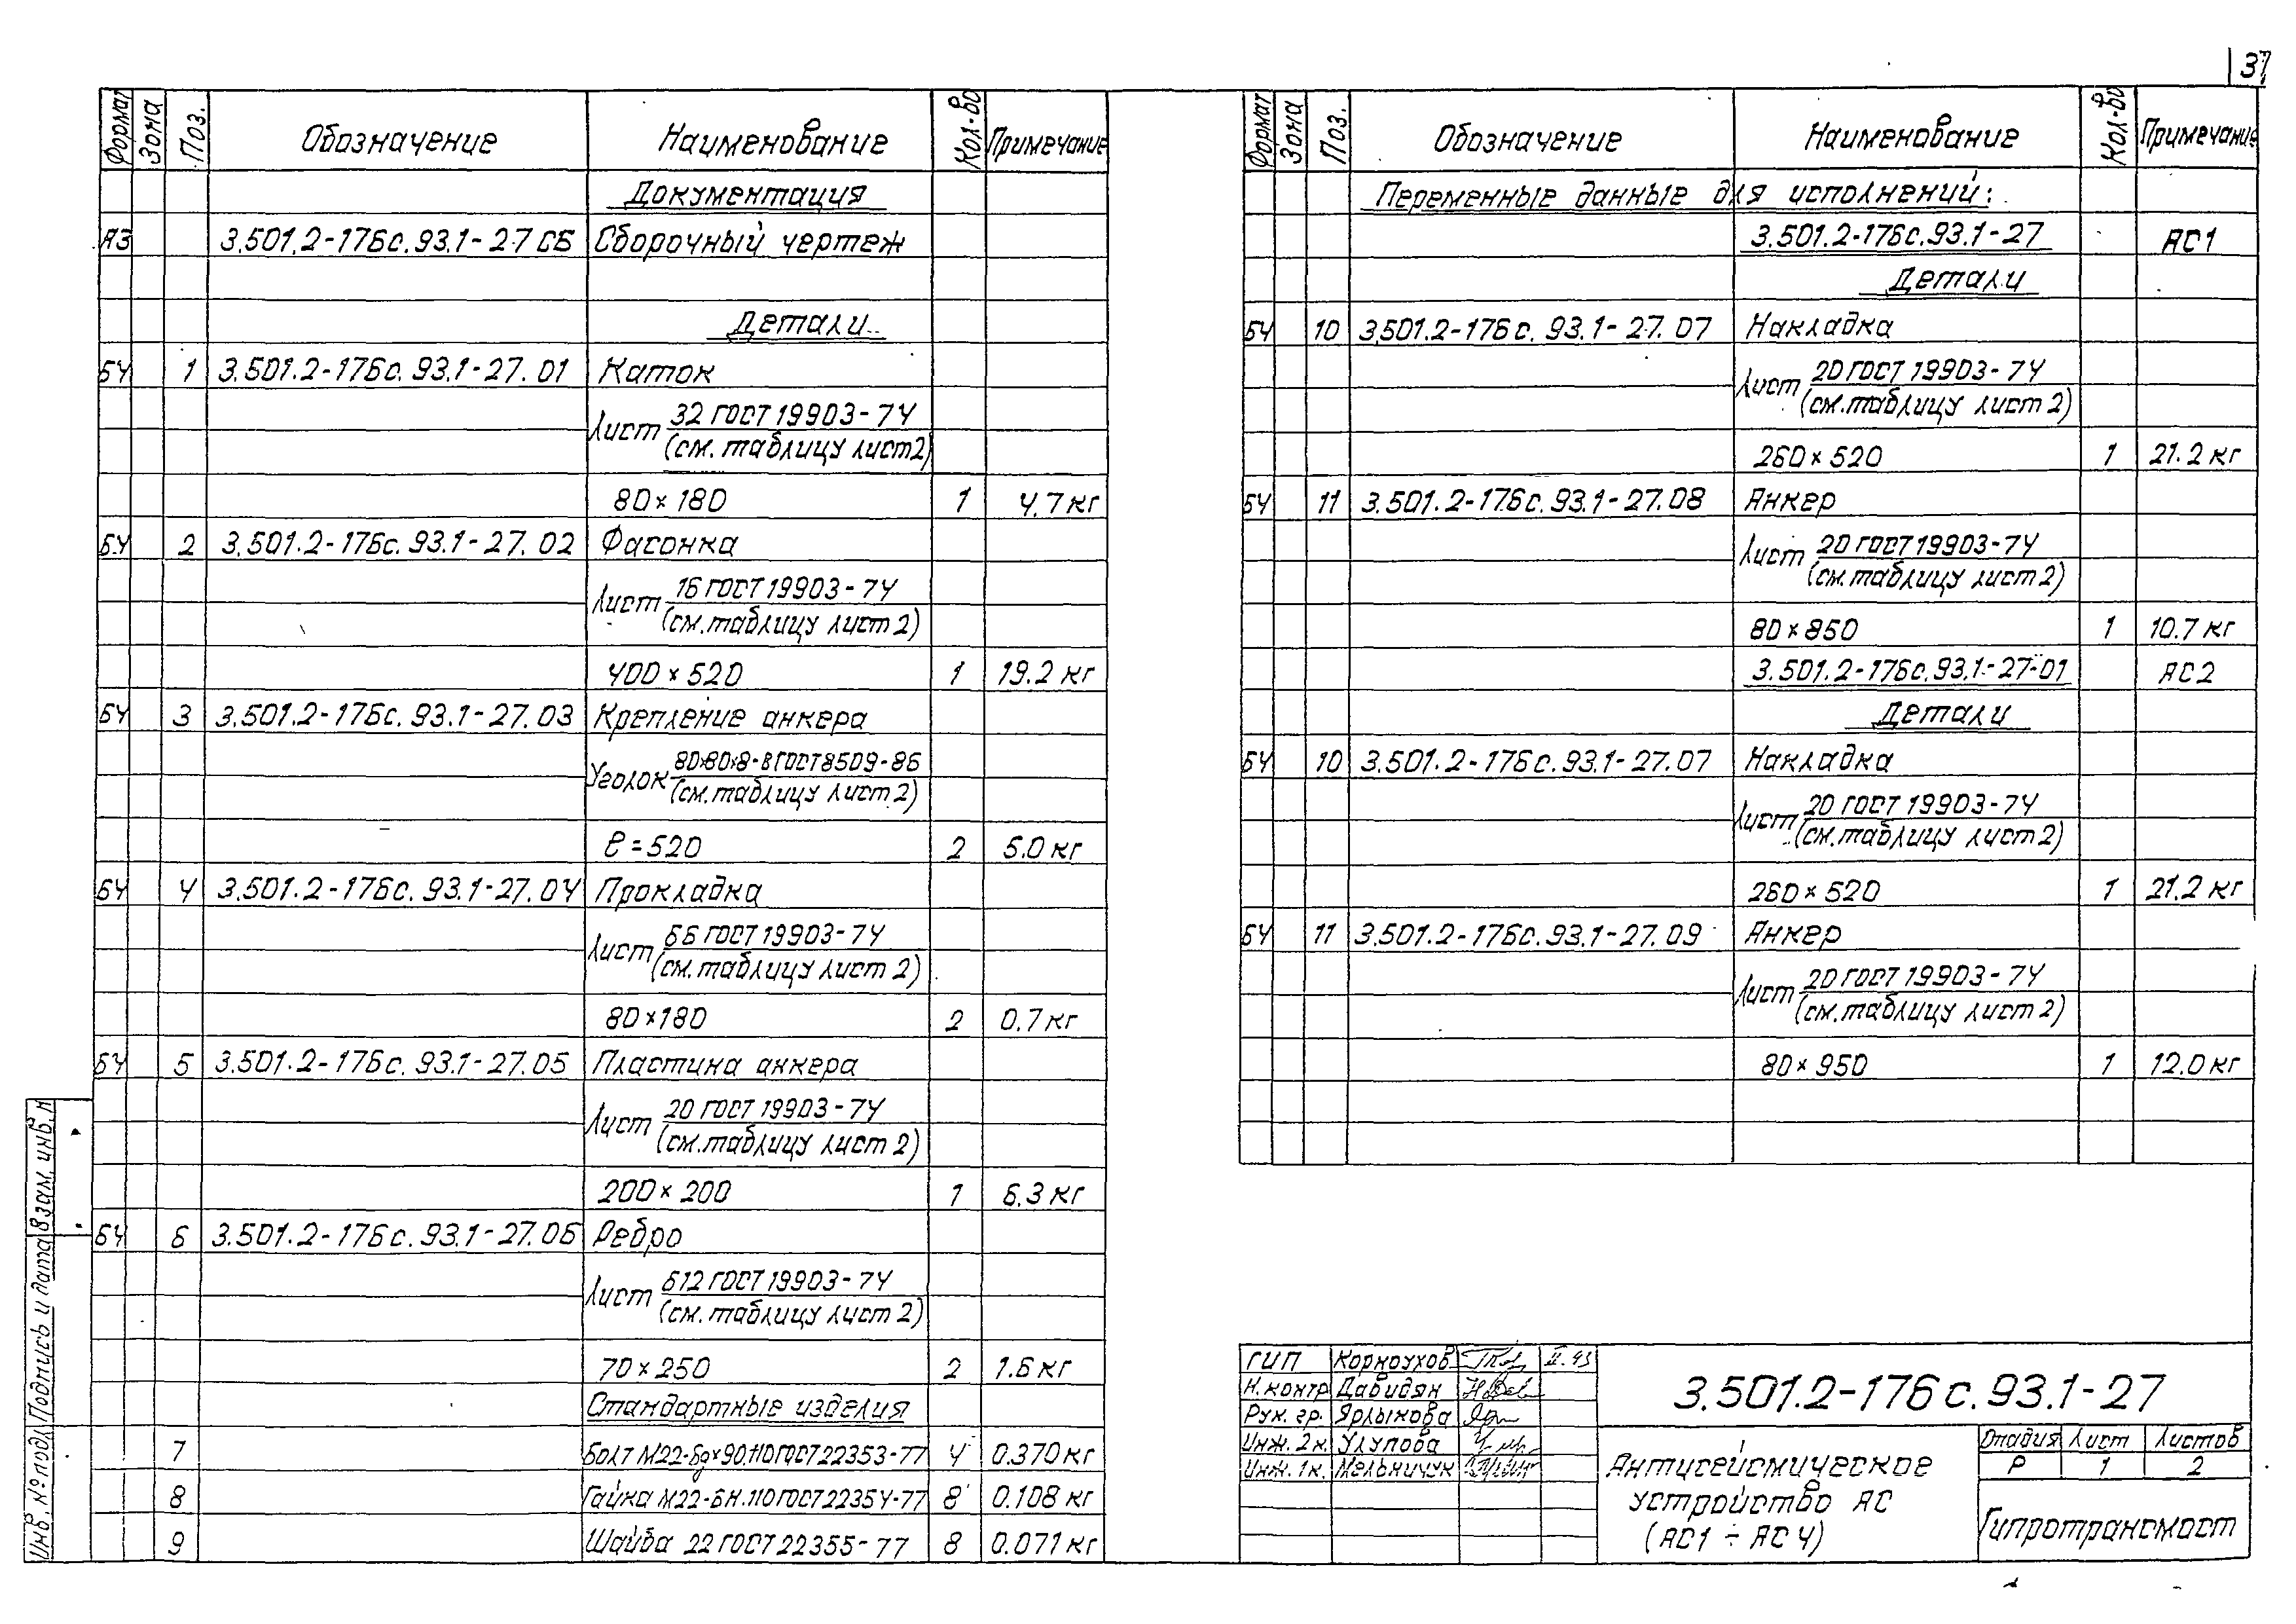 37
Формат Зона Поз. Обозначение Наименование Кол-во Примечание
Документация
А3 3.501.2-176с.93.1-27 СБ Сборочный чертеж
Детали
БЧ 1 3.501.2-176с.93.1-27.01 Каток
Лист 32 ГОСТ 19903-74
(см. таблицу лист 2)
80×180 1 4.7 кг
БЧ 2 3.501.2-176с.93.1-27.02 Фасонка
Лист 16 ГОСТ 19903-74
(см. таблицу лист 2)
400×520 1 19.2 кг
БЧ 3 3.501.2-176с.93.1-27.03 Крепление анкера
Уголок 80×80×8-В ГОСТ 8509-86
(см. таблицу лист 2)
ℓ=520 2 5.0 кг
БЧ 4 3.501.2-176с.93.1-27.04 Прокладка
Лист Б6 ГОСТ 19903-74
(см. таблицу лист 2)
80×180 2 0.7 кг
БЧ 5 3.501.2-176с.93.1-27.05 Пластина анкера
Лист 20 ГОСТ 19903-74
(см. таблицу лист 2)
200×200 1 6.3 кг
БЧ 6 3.501.2-176с.93.1-27.06 Ребро
Лист Б12 ГОСТ 19903-74
(см. таблицу лист 2)
70×250 2 1.6 кг
Стандартные изделия
7 Болт М22-6g×90.110 ГОСТ 22353-77 4 0.370 кг
8 Гайка М22-6Н.110 ГОСТ 22354-77 8 0.108 кг
9 Шайба 22 ГОСТ 22355-77 8 0.071 кг
Формат Зона Поз. Обозначение Наименование Кол-во Примечание
Переменные данные для исполнений:
3.501.2-176с.93.1-27 АС1
Детали
БЧ 10 3.501.2-176с.93.1-27.07 Накладка
Лист 20 ГОСТ 19903-74
(см. таблицу лист 2)
260×520 1 21.2 кг
БЧ 11 3.501.2-176с.93.1-27.08 Анкер
Лист 20 ГОСТ 19903-74
(см. таблицу лист 2)
80×850 1 10.7 кг
3.501.2-176с.93.1-27-01 АС2
Детали
БЧ 10 3.501.2-176с.93.1-27.07 Накладка
Лист 20 ГОСТ 19903-74
(см. таблицу лист 2)
260×520 1 21.2 кг
БЧ 11 3.501.2-176с.93.1-27.09 Анкер
Лист 20 ГОСТ 19903-74
(см. таблицу лист 2)
80×950 1 12.0 кг
Инв. № подл. Подпись и дата Взам. инв. №
ГИП Корноухов II.93
Н. контр Давидян
Рук. гр. Ярлыкова
Инж. 2к. Улупова
Инж. 1к. Мельничук
3.501.2-176с.93.1-27
Антисейсмическое
устройство АС
(АС1 ÷ АС4)
Стадия Лист Листов
Р 1 2
Гипротрансмост